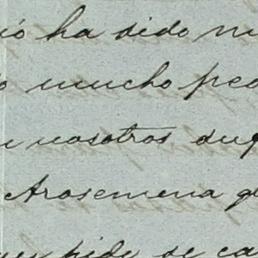 ió ha sido m
o mucho pe
n nosotros su
Arosemena q
pide se ca